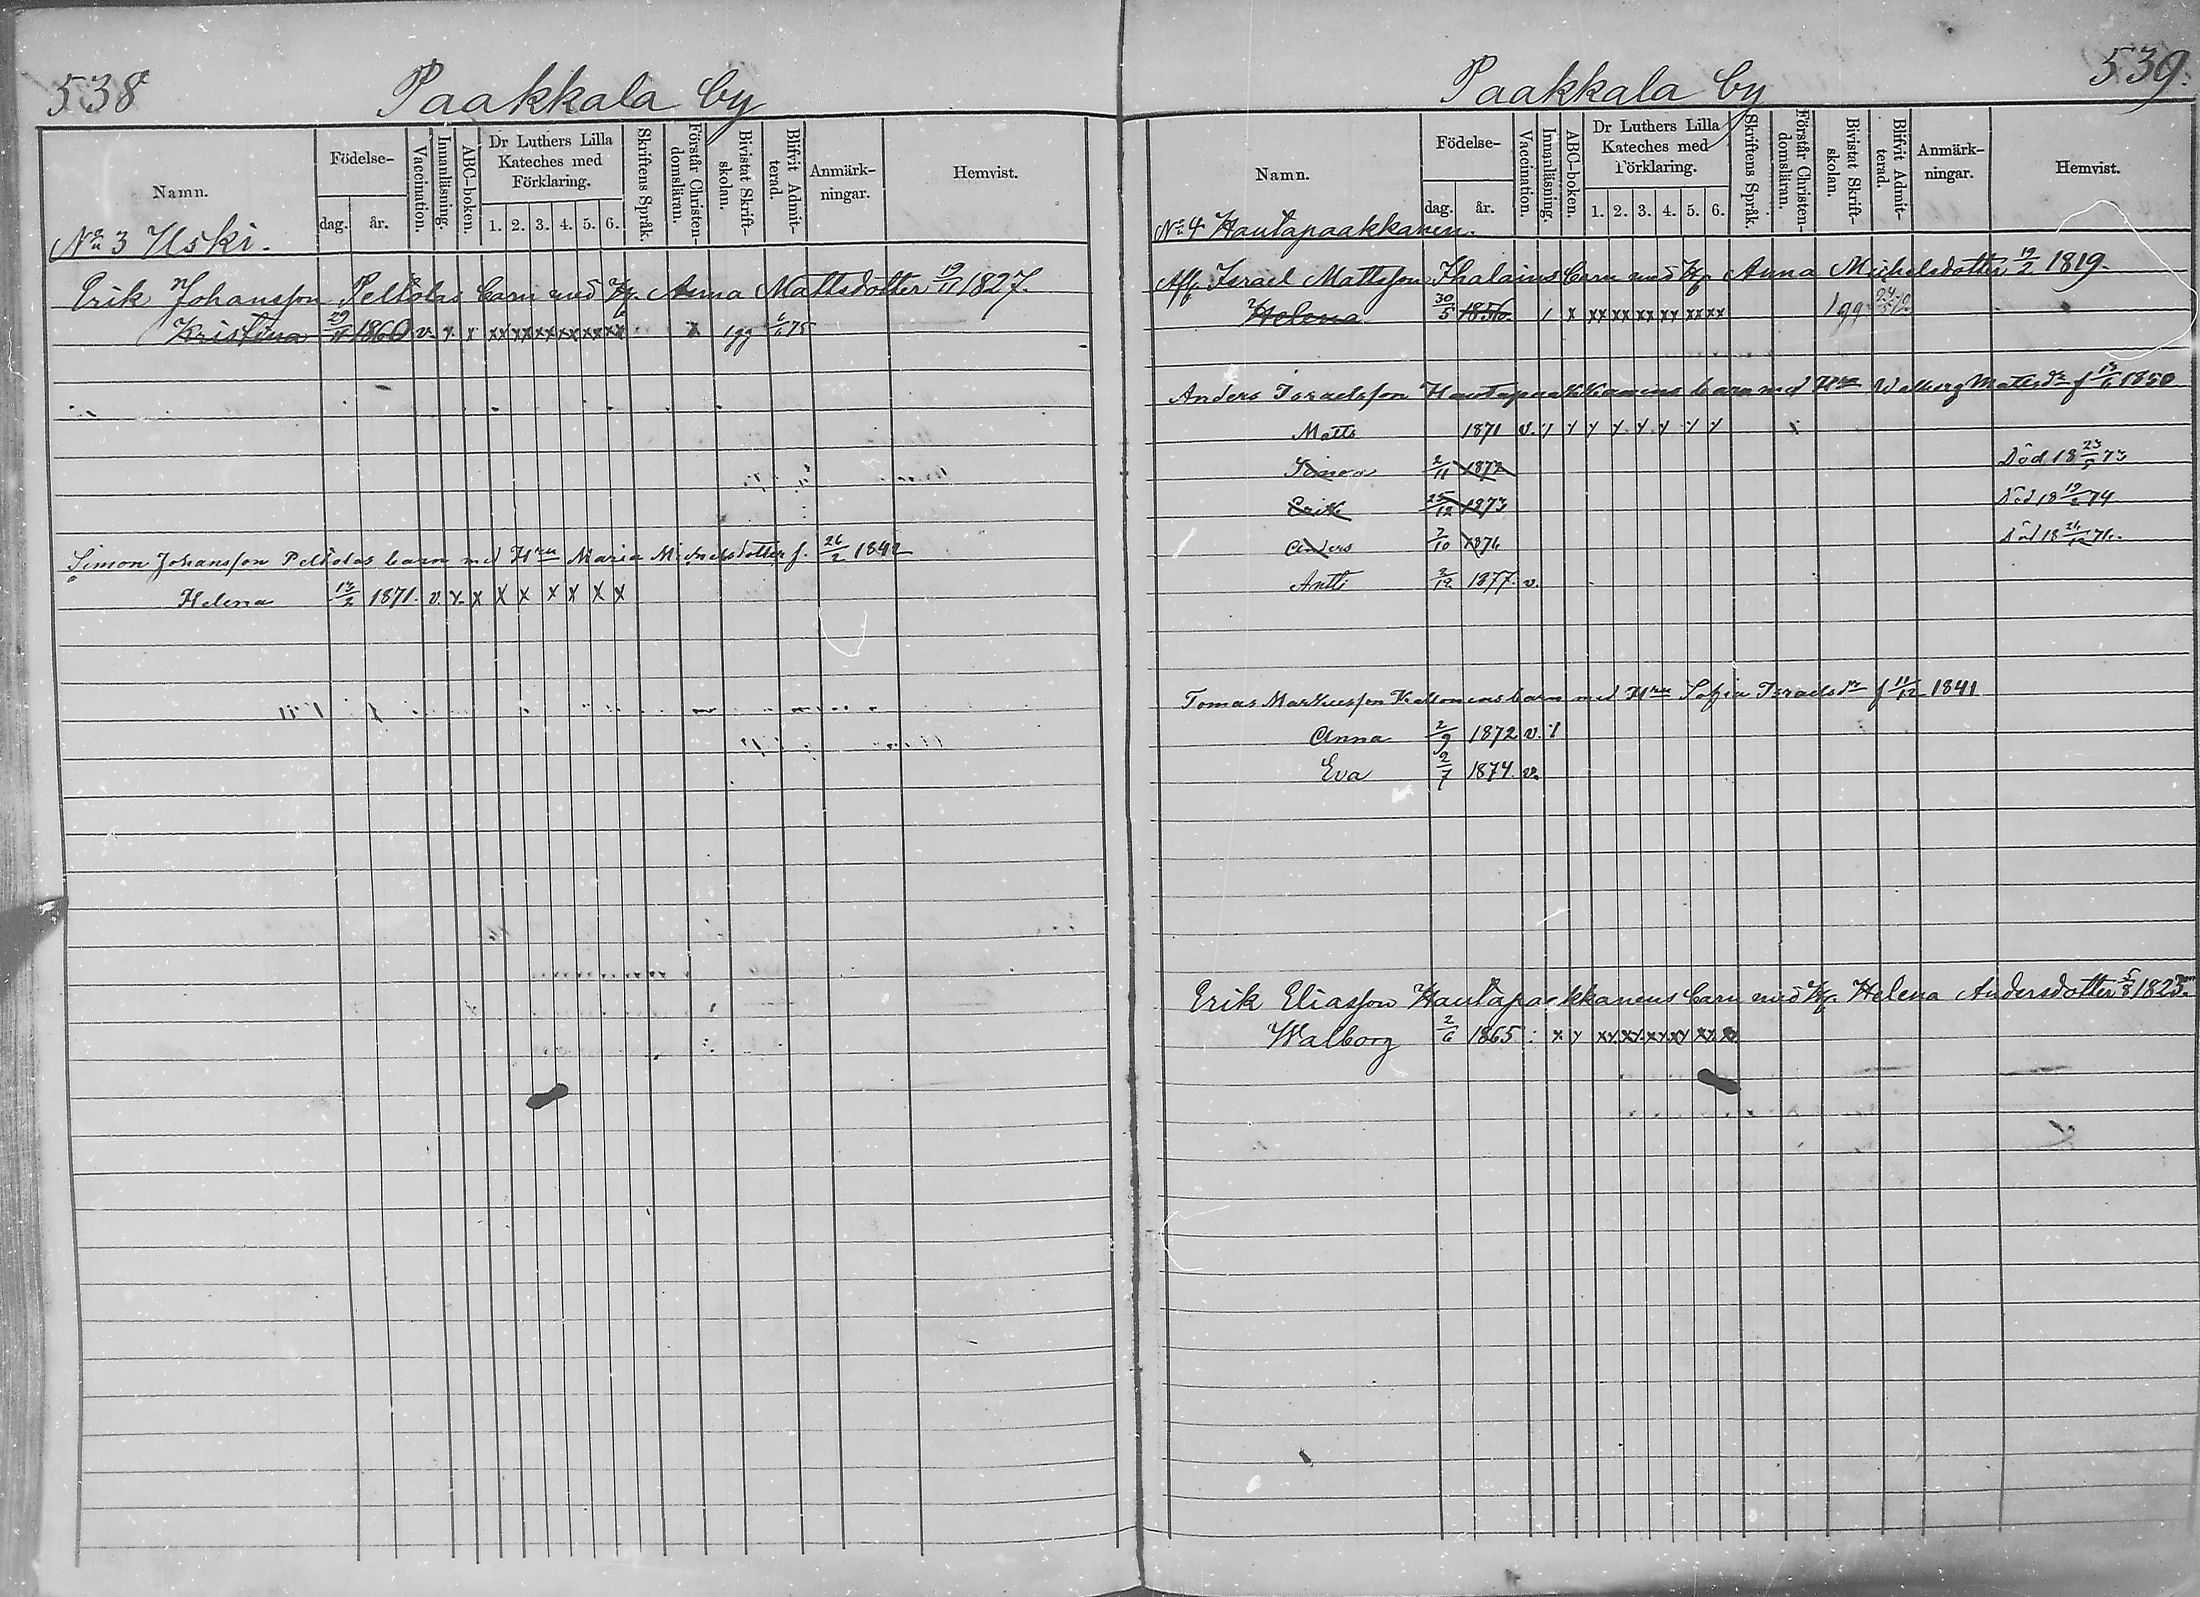 538
Paakkala by
Namn.
Födelse-
dag.
år.
Vaccination.
Innanläsning.
ABC-boken.
Dr Luthers Lilla
Kateches med
Förklaring.
1. 2. 3. 4. 5. 6.
Skriftens Språk.
Förstår Christen-
domsläran.
Bivistat Skrift-
skolan.
Blifvit Admit-
terad.
Anmärk-
ningar.
Hemvist.
No 3 Uski.
Erik Johansson Peltolas barn med H. Anna Mattsdotter 19/11 1827.
Kristina 1860 v. x x xx xx xx xx xx xx x 1gg 75
Simon Johansson Peltolas barn med Hru Maria Michelsdotter f. 26/2 1842
Helena 13/2 1871. v. x. x x x x x x x
539.
Paakkala by
Namn.
Födelse-
dag.
år.
Vaccination.
Innanläsning.
ABC-boken.
Dr Luthers Lilla
Kateches med
Förklaring.
1. 2. 3. 4. 5. 6.
Skriftens Språk.
Förstår Christen-
domsläran.
Bivistat Skrift-
skolan.
Blifvit Admit-
terad.
Anmärk-
ningar.
Hemvist.
No 4 Hautapaakkanen.
Afl. Israel Mattsson Ihalains barn med H. Anna Michelsdotter 19/2 1819.
Helena 30/5 1856. / x xx xx xx xx xx xx 1gg
Anders Israelsson Hautapaakkanens barn med Hru Walborg Matsdr f 13/6 1850
Matts 1871 v. / x x x x x x x /
Simon 2/11 1872 Död 18 23/5 73
Erik 25/12 1873 Död 18 19/2 74
Anders 7/10 1876 Död 18 76.
Antti 3/12 1877. v.
Tomas Markusson Kettonens barn med Hru Sofia Israelsdr f 11/12 1841
Anna 2/9 1872 v. /
Eva 2/7 1874. v.
Erik Eliasson Hautapaakkanens barn med H. Helena Andersdotter 5/8 1825.
Walborg 2/6 1865 x x xx xx xx xx xx xx